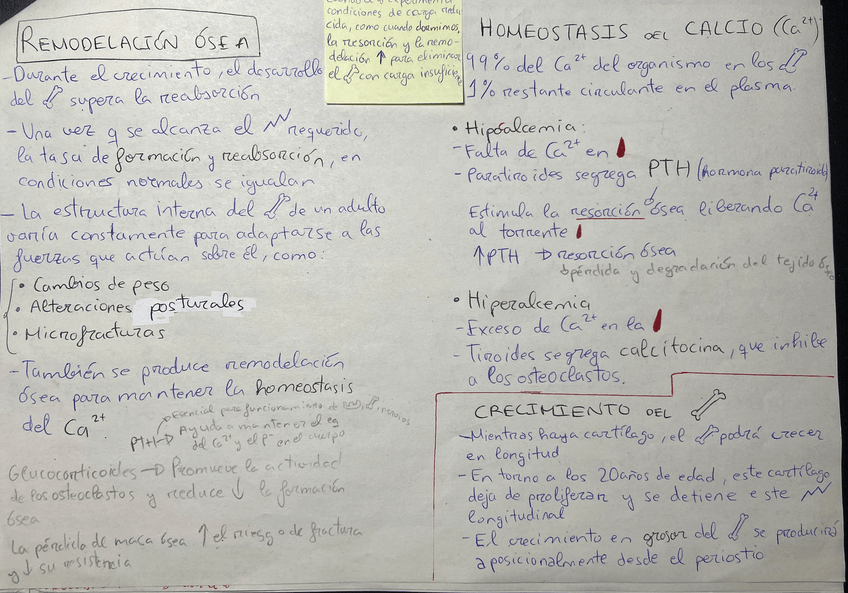 REMODELACIÓN ÓSEA
-Durante el crecimiento, el desarrollo
del supera la reabsorción
- Una vez q se alcanza el requerido,
la tasa de formación y reabsorción, en
condiciones normales se igualan
- La estructura interna del de un adulto
varía constantemente para adaptarse a las
fuerzas que actúan sobre él, como:
• Cambios de peso
• Alteraciones posturales
• Microfracturas
-También se produce remodelación
ósea para mantener la homeostasis
del Ca²⁺
Esencial para funcionamiento de
PTH → Ayuda a mantener el eq
del Ca²⁺ y el P⁻ en el cuerpo
Glucocorticoides → Promueve la actividad
de los osteoclastos y reduce ↓ la formación
ósea
La pérdida de maca ósea ↑ el riesgo de fractura
y ↓ su resistencia
condiciones de carga redu
cida, como cuando dormimos,
la resorción y la remo-
delación ↑ para eliminar
el con carga insuficie
HOMEOSTASIS DEL CALCIO (Ca²⁺)
99% del Ca²⁺ del organismo en los
1% restante circulante en el plasma.
• Hipoalcemia:
-Falta de Ca²⁺ en
- Paratiroides segrega PTH (hormona paratiroid)
Estimula la resorción ósea liberando Ca²⁺
al torrente
↑PTH → resorción ósea
pérdida y degradación del tejido
• Hiperalcemia
-Exceso de Ca²⁺ en la
- Tiroides segrega calcitocina, que inhibe
a los osteoclastos.
CRECIMIENTO DEL
-Mientras haya cartílago, el podrá crecer
en longitud
- En torno a los 20 años de edad, este cartílago
deja de proliferar y se detiene este
longitudinal
- El crecimiento en grosor del se producirá
aposicionalmente desde el periostio